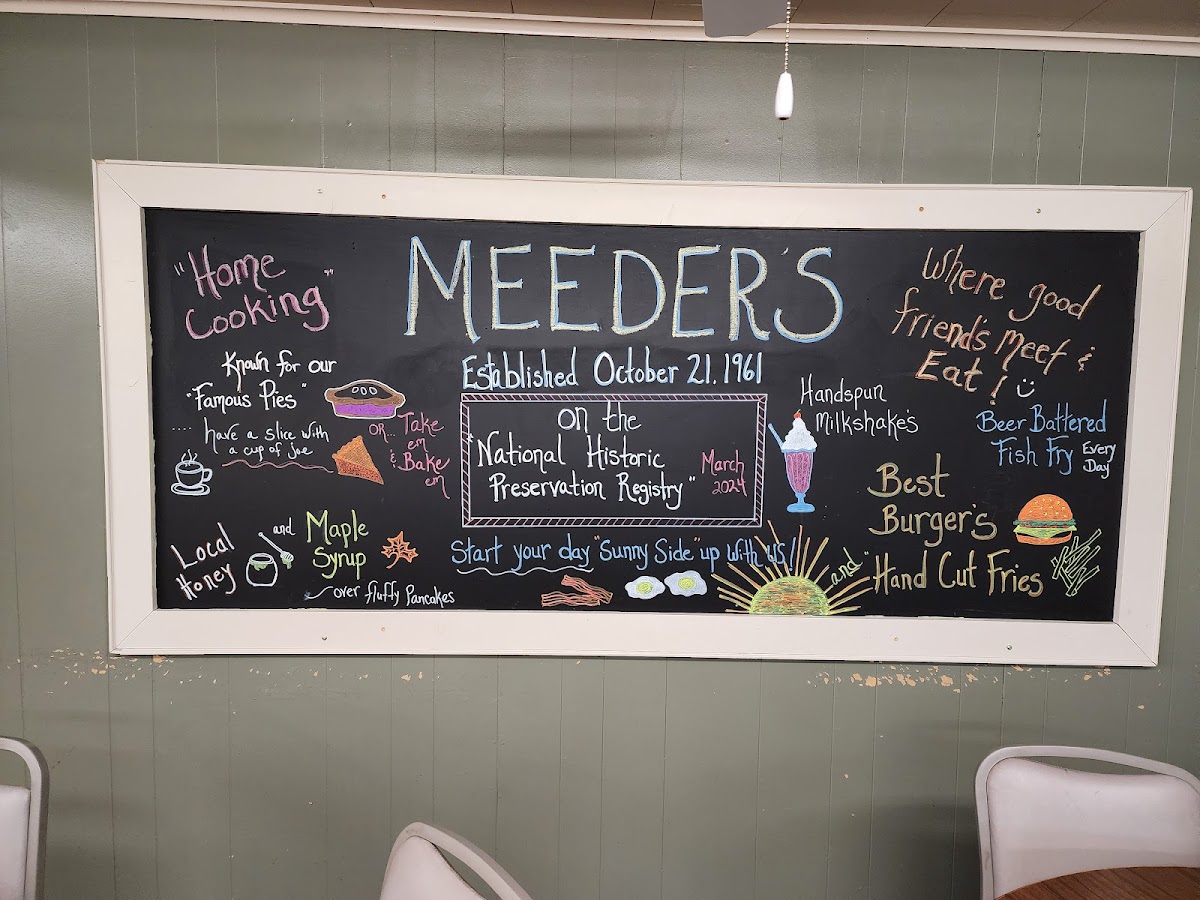 "Home
Cooking"
Known for our
"Famous Pies"
.... have a slice with
a cup of joe
OR... Take
em
& Bake
em
Local
Honey
and Maple
Syrup
over fluffy Pancakes
MEEDER'S
Established October 21, 1961
on the
"National Historic
Preservation Registry"
March
2024
Start your day "Sunny Side" up with us!
Handspun
Milkshake's
Where good
friend's meet &
Eat!
Beer Battered
Fish Fry Every
Day
Best
Burger's
and "Hand Cut Fries